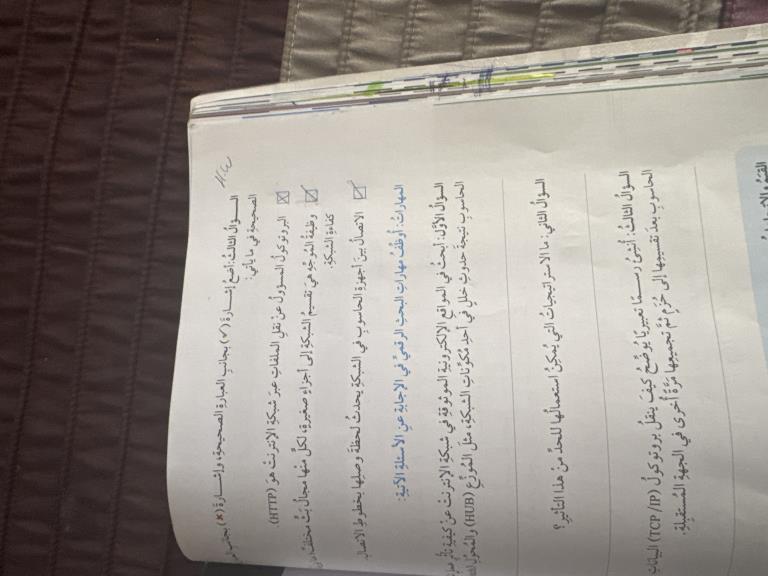 السؤالُ الثالثُ: أضعُ إشارةَ (✓) بجانبِ العبارةِ الصحيحةِ، وإشارةَ (✗) بجانبِ
الصحيحةِ في ما يأتي:
البروتوكولُ المسؤولُ عنْ نقلِ الملفاتِ عبرَ شبكةِ الإنترنتْ هوَ (HTTP).
وظيفةُ المُوجِّهِ هيَ تقسيمُ الشبكةِ إلى أجزاءٍ صغيرةٍ، لكلٍّ منْها مجالُ بثٍّ مختلفٌ
كفاءةِ الشبكةِ.
الاتصالُ بينَ أجهزةِ الحاسوبِ في الشبكةِ يحدثُ لحظةَ وصلِها بخطوطِ الاتصالِ.
المهاراتُ: أُوظِّفُ مهاراتِ البحثِ الرقميِّ في الإجابةِ عنِ الأسئلةِ الآتيةِ:
السؤالُ الأوَّلُ: أبحثُ في المواقعِ الإلكترونيةِ الموثوقةِ في شبكةِ الإنترنتْ عنْ كيفيةِ تأثُّرِ
الحاسوبِ نتيجةَ حدوثِ خللٍ في أحدِ مُكوِّناتِ الشبكةِ، مثلَ المُوزِّعِ (HUB) والمُحوِّلِ
السؤالُ الثاني: ما الاستراتيجياتُ التي يُمكِنُ استعمالُها للحدِّ منْ هذا التأثيرِ؟
السؤالُ الثالثُ: أُنشِئُ رسمًا تعبيريًّا يُوضِّحُ كيفَ ينقلُ بروتوكولُ (TCP/IP) البياناتِ
الحاسوبِ بعدَ تقسيمِها إلى حُزَمٍ ثمَّ تجميعِها مَرَّةً أُخرى في الجهةِ المُستقبِلةِ.